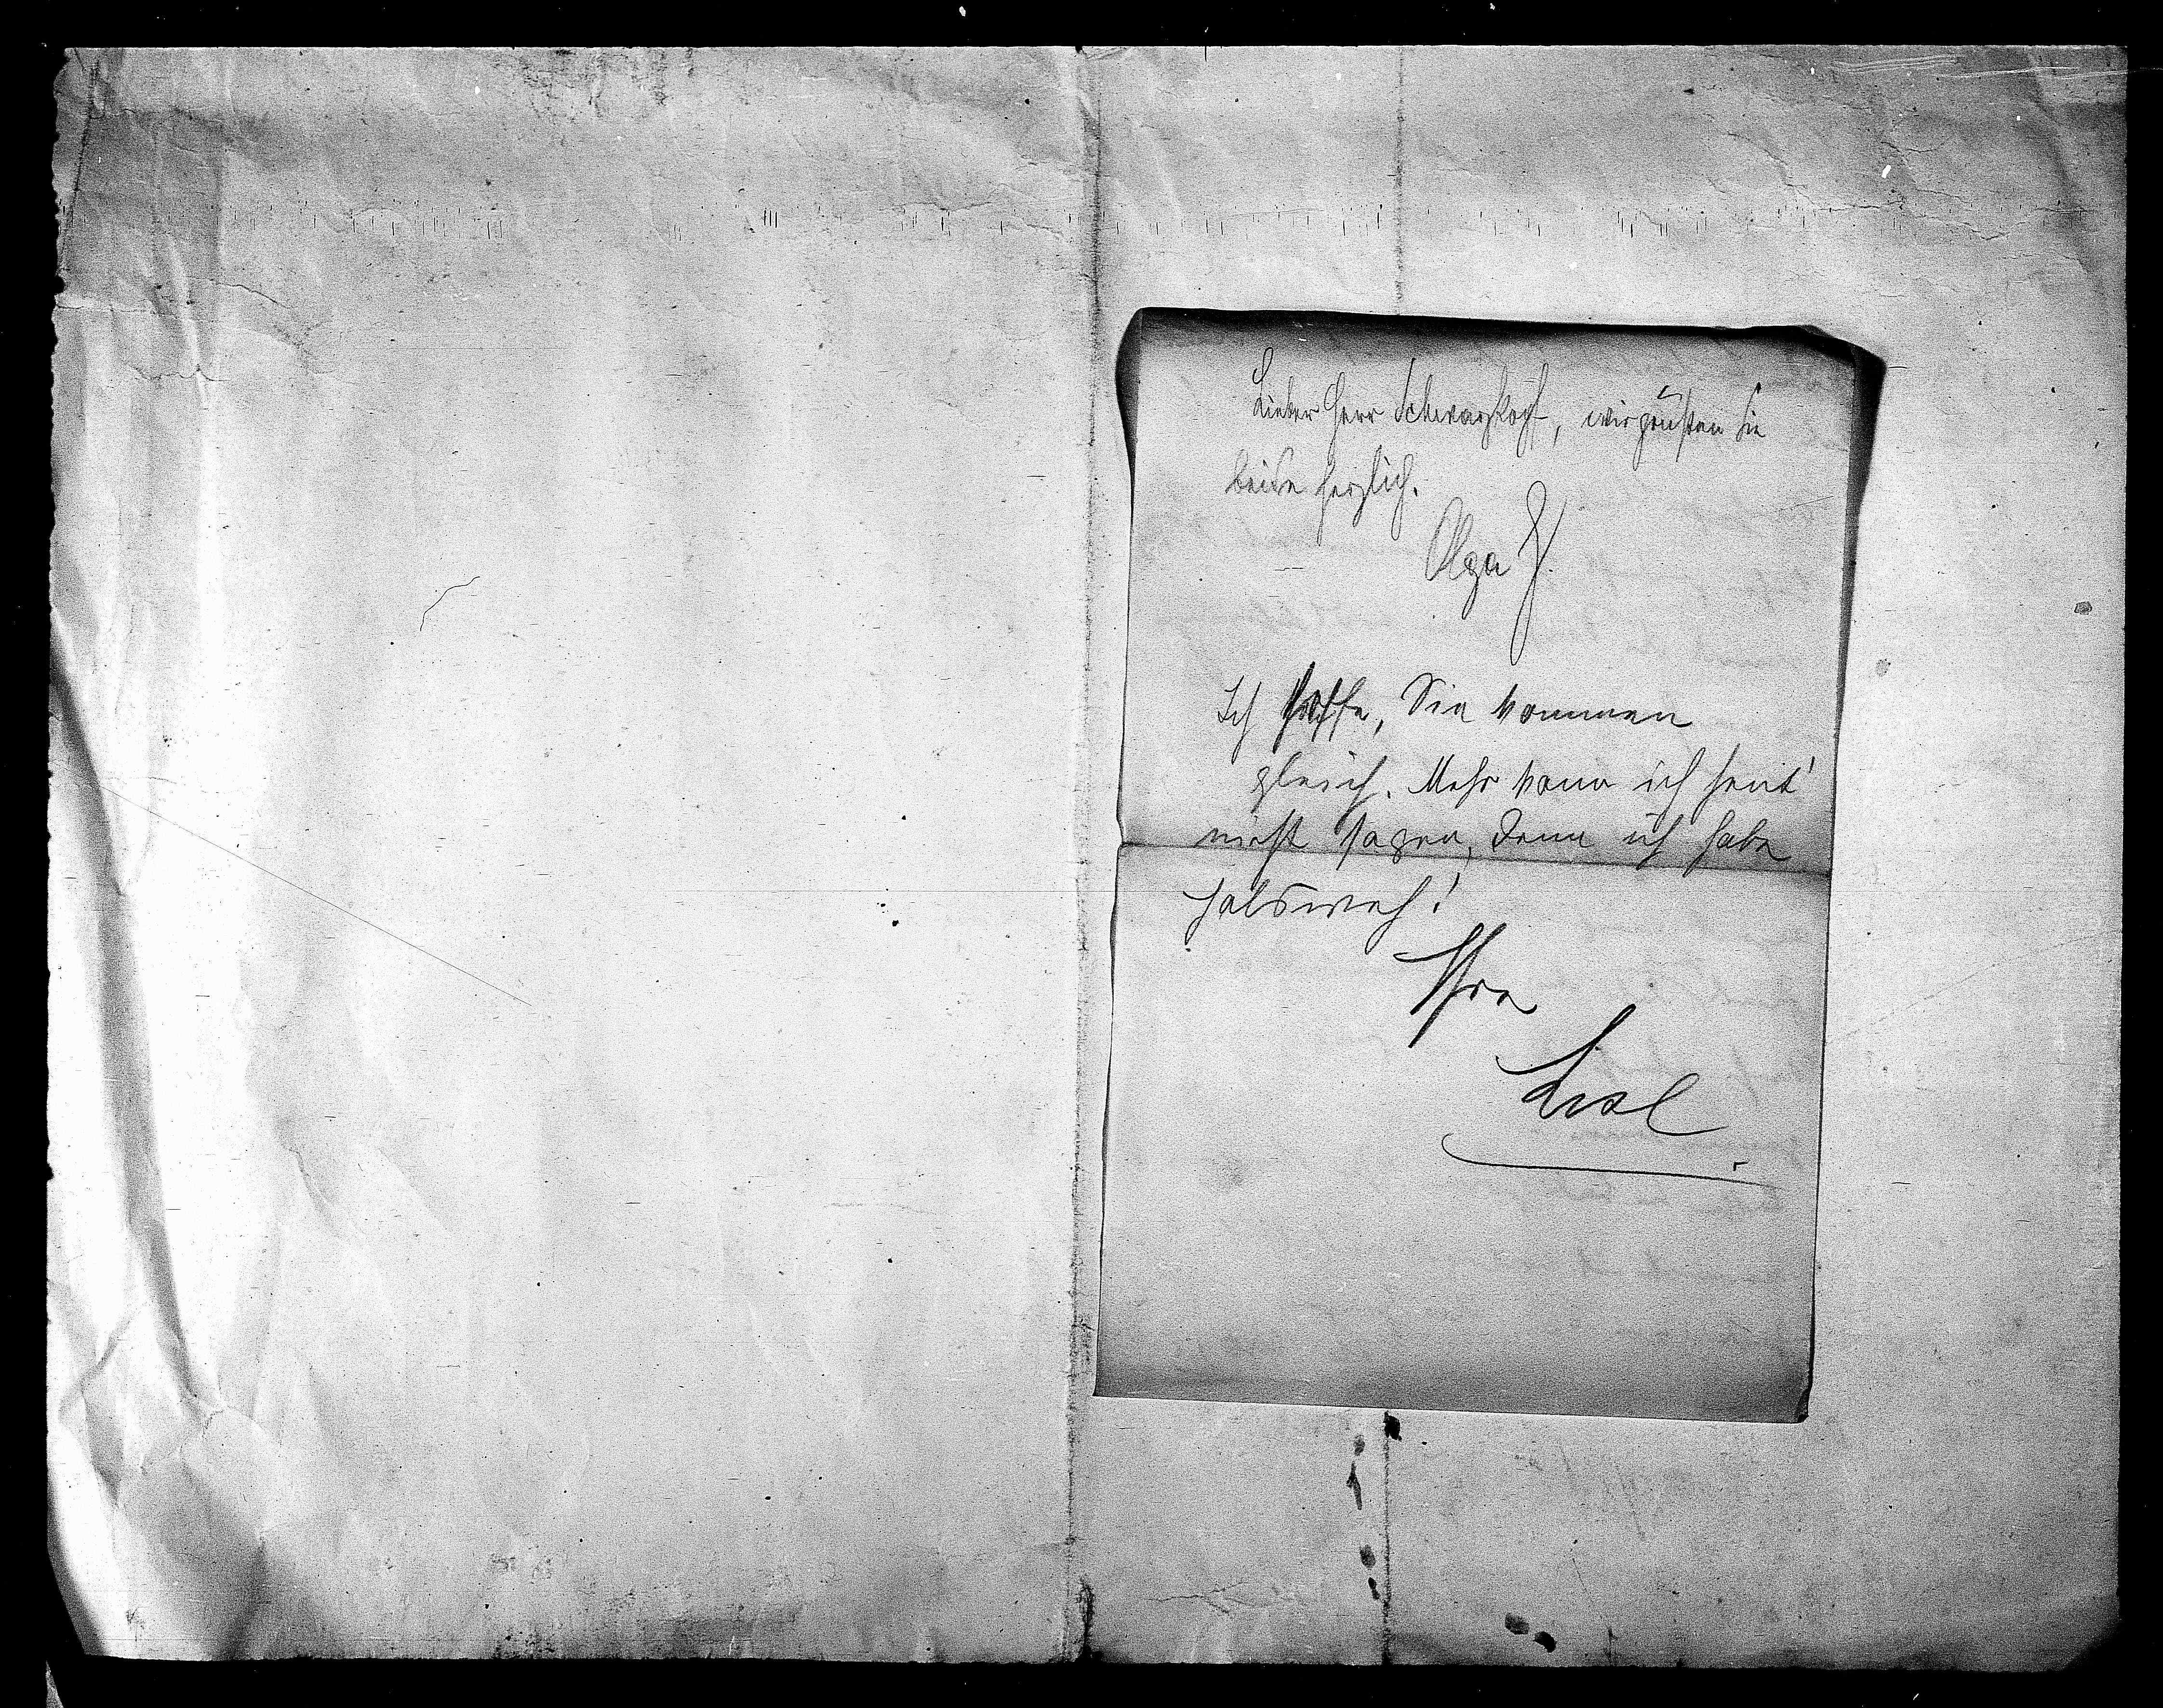 Lieber Herr Schwarzkopf, wir grüßen Sie
beide herzlich.
Olga
Ich hoffe, Sie kommen
gleich. Mehr kann ich heut'
nicht sagen, denn ich habe
Halsweh!
Ihre
Liesl